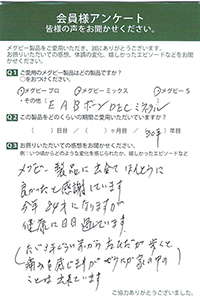 会員様アンケート
皆様の声をお聞かせください。
メグビー製品をご愛用いただき、誠にありがとうございます。
お摂りいただいての感想、体調の変化、嬉しかったエピソードなどをお聞かせください。
Q.1 ご愛用のメグビー製品はどの製品ですか?
○をおつけください。
・メグビープロ ・メグビーミックス ・メグビーS
・その他( EAB
Q.2 この製品をどのくらいの期間ご愛用いただいていますか?
( )日目 / ( )ヶ月目 / ( 30年 )年目
Q.3 お摂りいただいての感想をお聞かせください。
例:いつ頃からどのような変化を感じられたか、嬉しかったエピソードなど
メグビー製品に出会てほんとうに
良かったと感謝しています
今年84才になりますが
健康に日日過しています
歩くと
痛みを感じますが 家の中の
ことは出来ています
ご協力ありがとうございました。